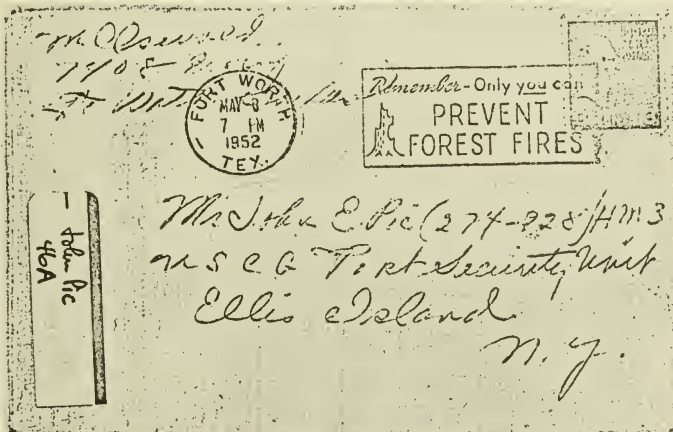 M. C. Oswald
7408
FORT WORTH
MAY 8
7 PM
1952
TEX.
Remember-Only you can
PREVENT
FOREST FIRES
Mr John E. Pic (274-228) HM3
U S C G Port Security Unit
Ellis Island
N. Y.
- John Pic
46A